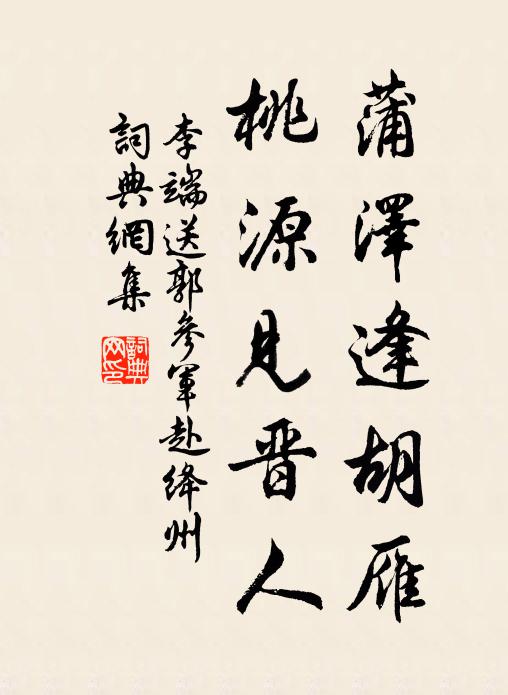 蒲澤逢胡雁
桃源見晋人
李端送郭參軍赴绛州
詞典網集
詞典網印